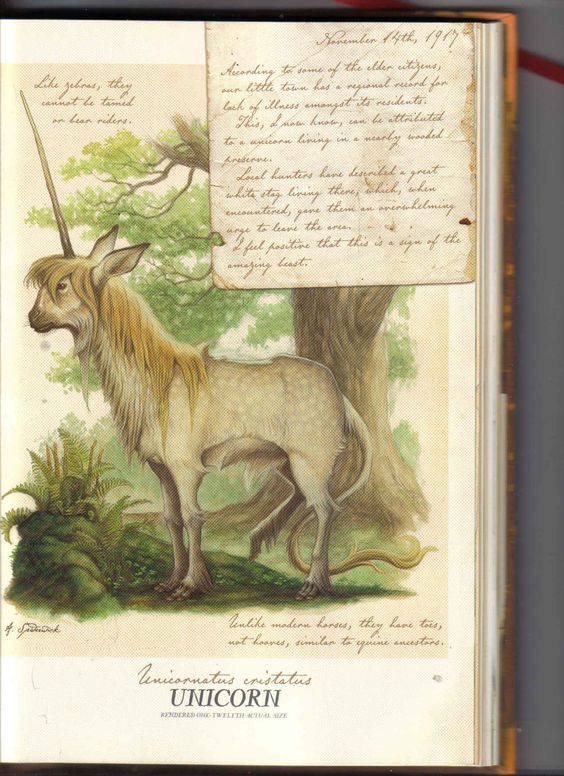 November 14th, 1917
According to some of the elder citizens,
our little town has a regional record for
lack of illness amongst its residents.
This, I now know, can be attributed
to a unicorn living in a nearby wooded
preserve.
Local hunters have described a great
white stag living there, which, when
encountered, gave them an overwhelming
urge to leave the area.
I feel positive that this is a sign of the
amazing beast.
Like zebras, they
cannot be tamed
or bear riders.
Unlike modern horses, they have toes,
not hooves, similar to equine ancestors.
A. Spiderwick
Unicornatus cristatus
UNICORN
RENDERED ONE-TWELFTH ACTUAL SIZE